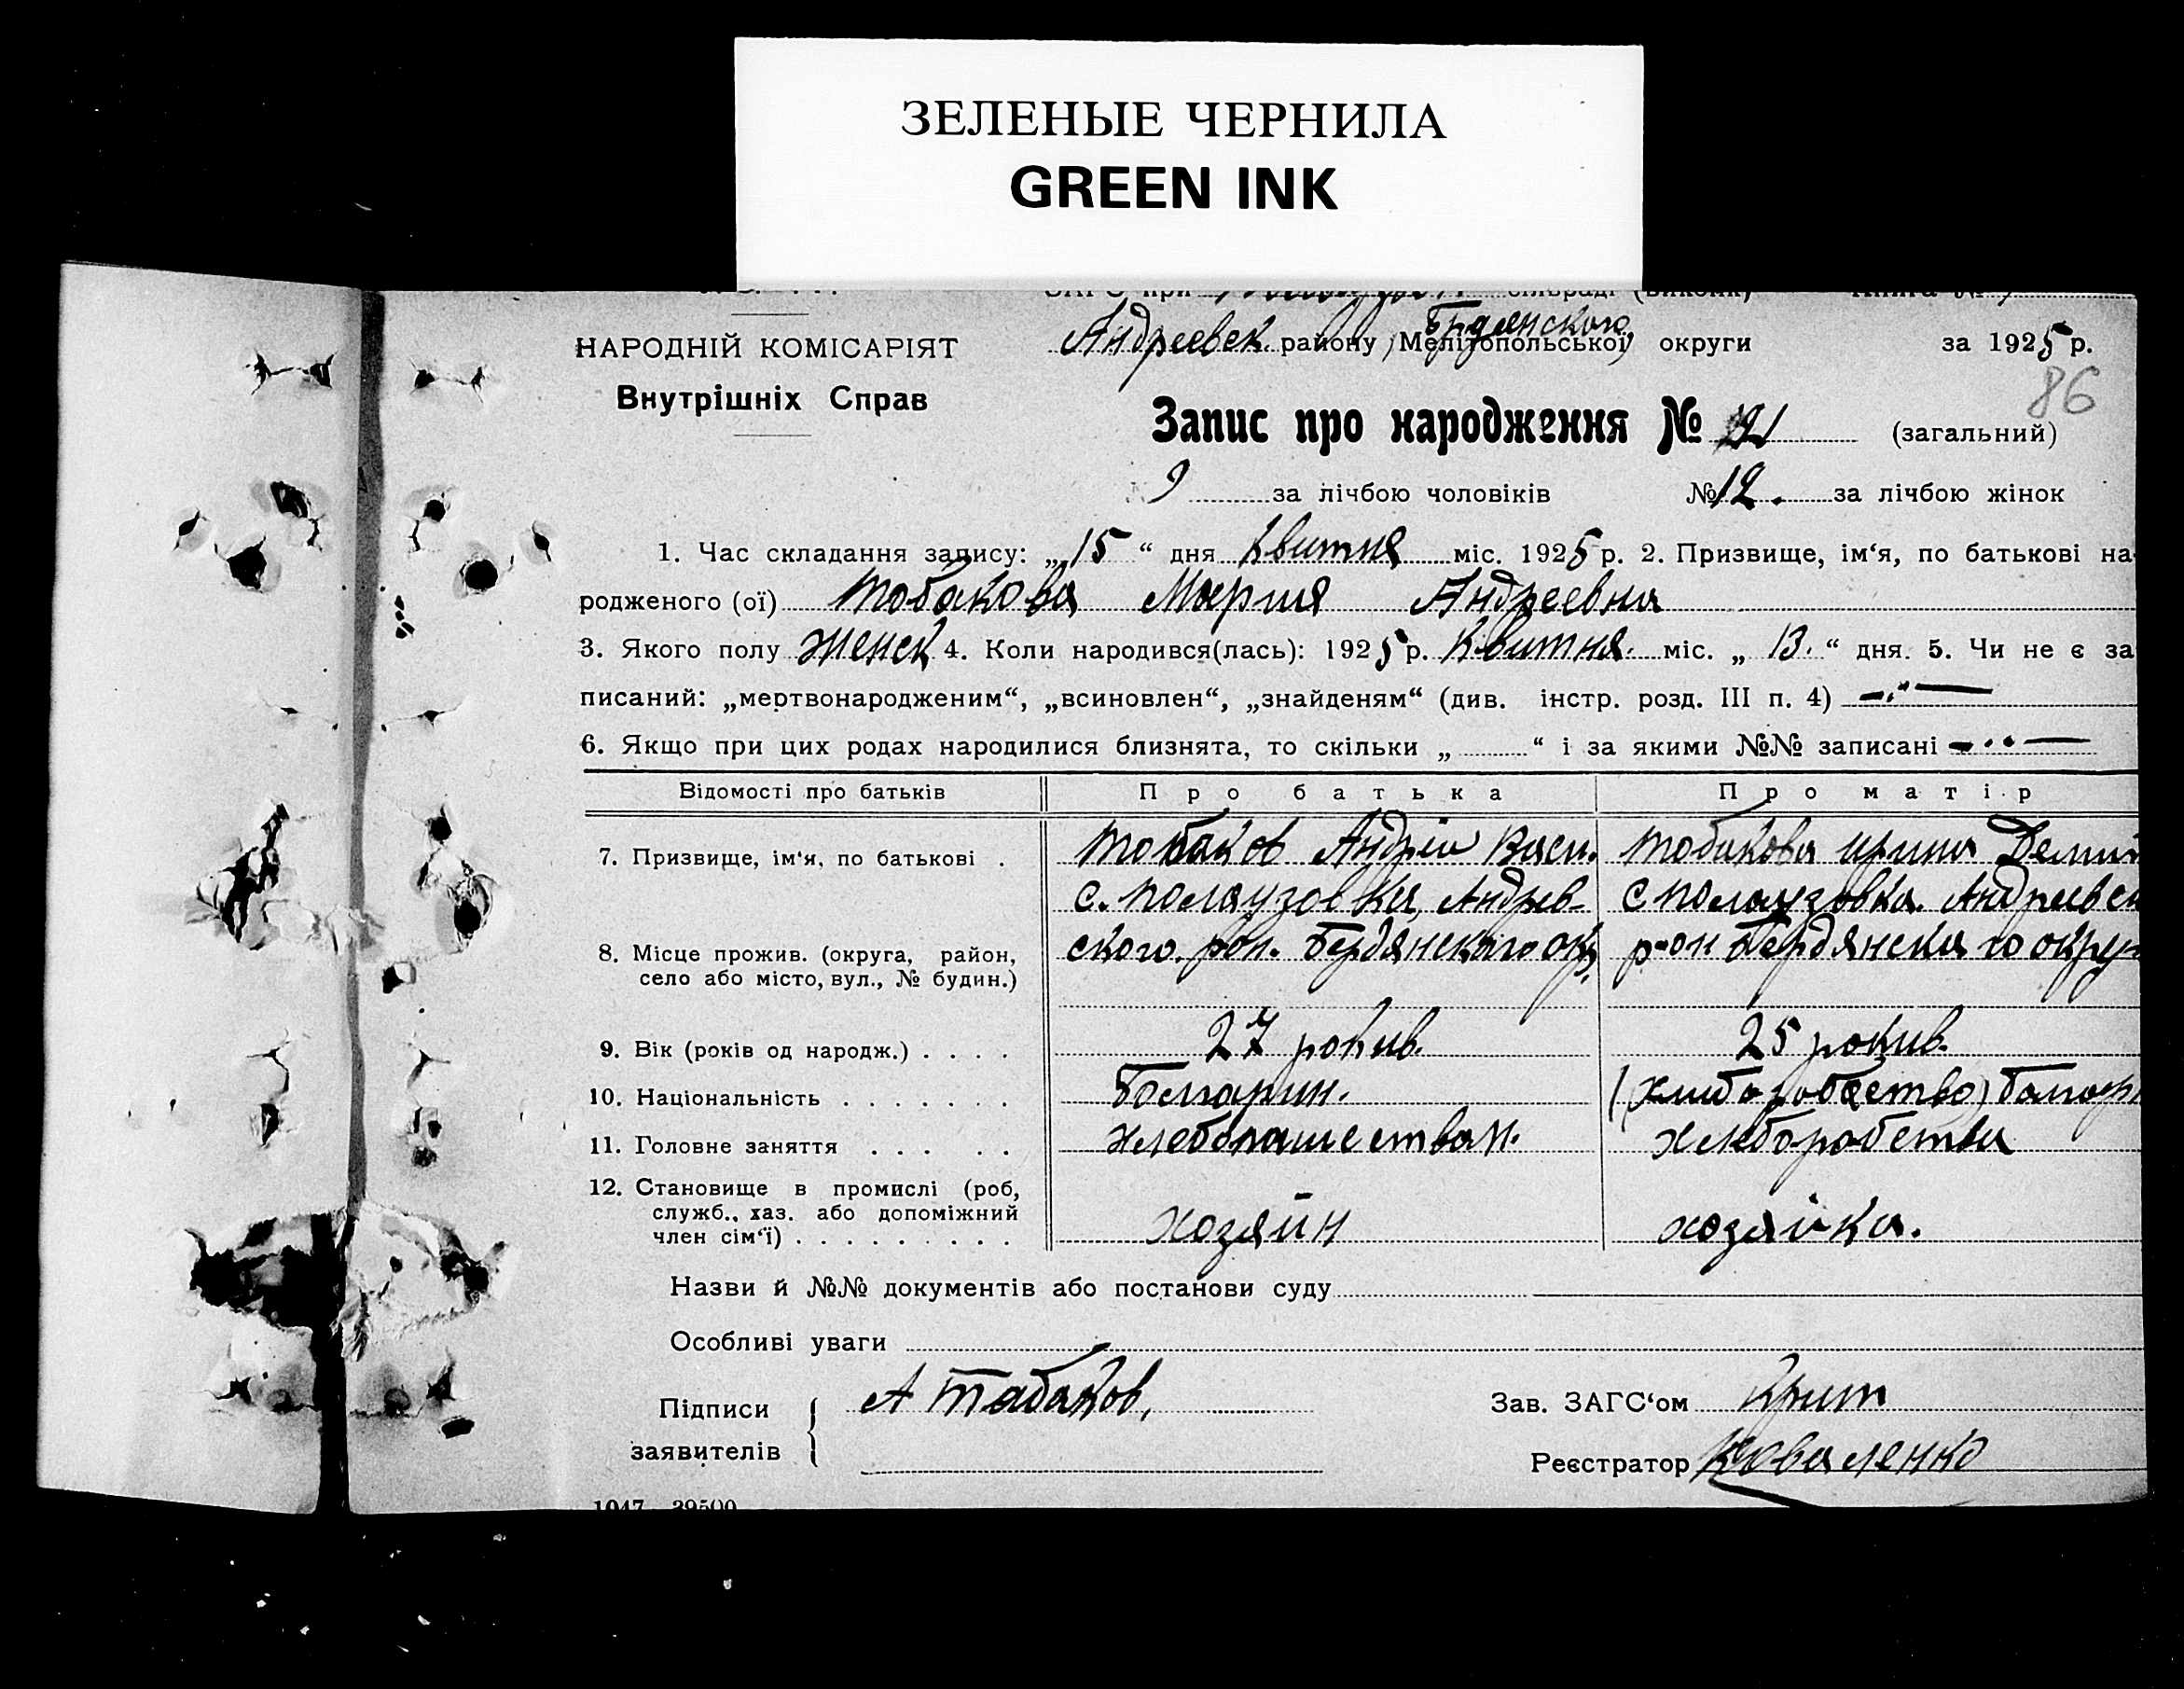 ЗЕЛЕНЫЕ ЧЕРНИЛА
GREEN INK
НАРОДНІЙ КОМІСАРІЯТ
Внутрішніх Справ
Андреевск району Мелітопольської Брдянского округи за 1925 р.
86
Запис про народження № 21 (загальний)
9 за лічбою чоловіків № 12. за лічбою жінок
1. Час складання запису: „15“ дня Квитня міс. 1925 р. 2. Призвище, ім‘я, по батькові на-
родженого (ої) Тобакова Мария Андреевна
3. Якого полу Женск 4. Коли народився(лась): 1925 р. Квитня. міс. „ 13. “ дня. 5. Чи не є за
писаний: „мертвонародженим“, „всиновлен“, „знайденям“ (див. інстр. розд. III п. 4)
6. Якщо при цих родах народилися близнята, то скільки „ “ і за якими №№ записані
Відомості про батьків Про батька Про матір
7. Призвище, ім‘я, по батькові . Тобаков Андрій Васи. Тобакова Ирина Деми
с. Полаузовка, Андрев- с Полаузовка. Андреевск
8. Місце прожив. (округа, район, ского. рон. Бердянского окр. р-он Бердянского окру
село або місто, вул., № будин.)
9. Вік (років од народж.) . . . . 27 рокив. 25 рокив.
10. Національність . . . . . . . Болгарин. (хлиборобство) болгар
11. Головне заняття . . . . . хлебопашеством. хлеборобства
12. Становище в промислі (роб,
служб., хаз. або допоміжний хозяйн хозяйка.
член сім‘ї) . . . . . . . . .
Назви й №№ документів або постанови суду
Особливі уваги
Підписи А Табаков, Зав. ЗАГС‘ом
заявителів Реєстратор Коваленко
1047 39500